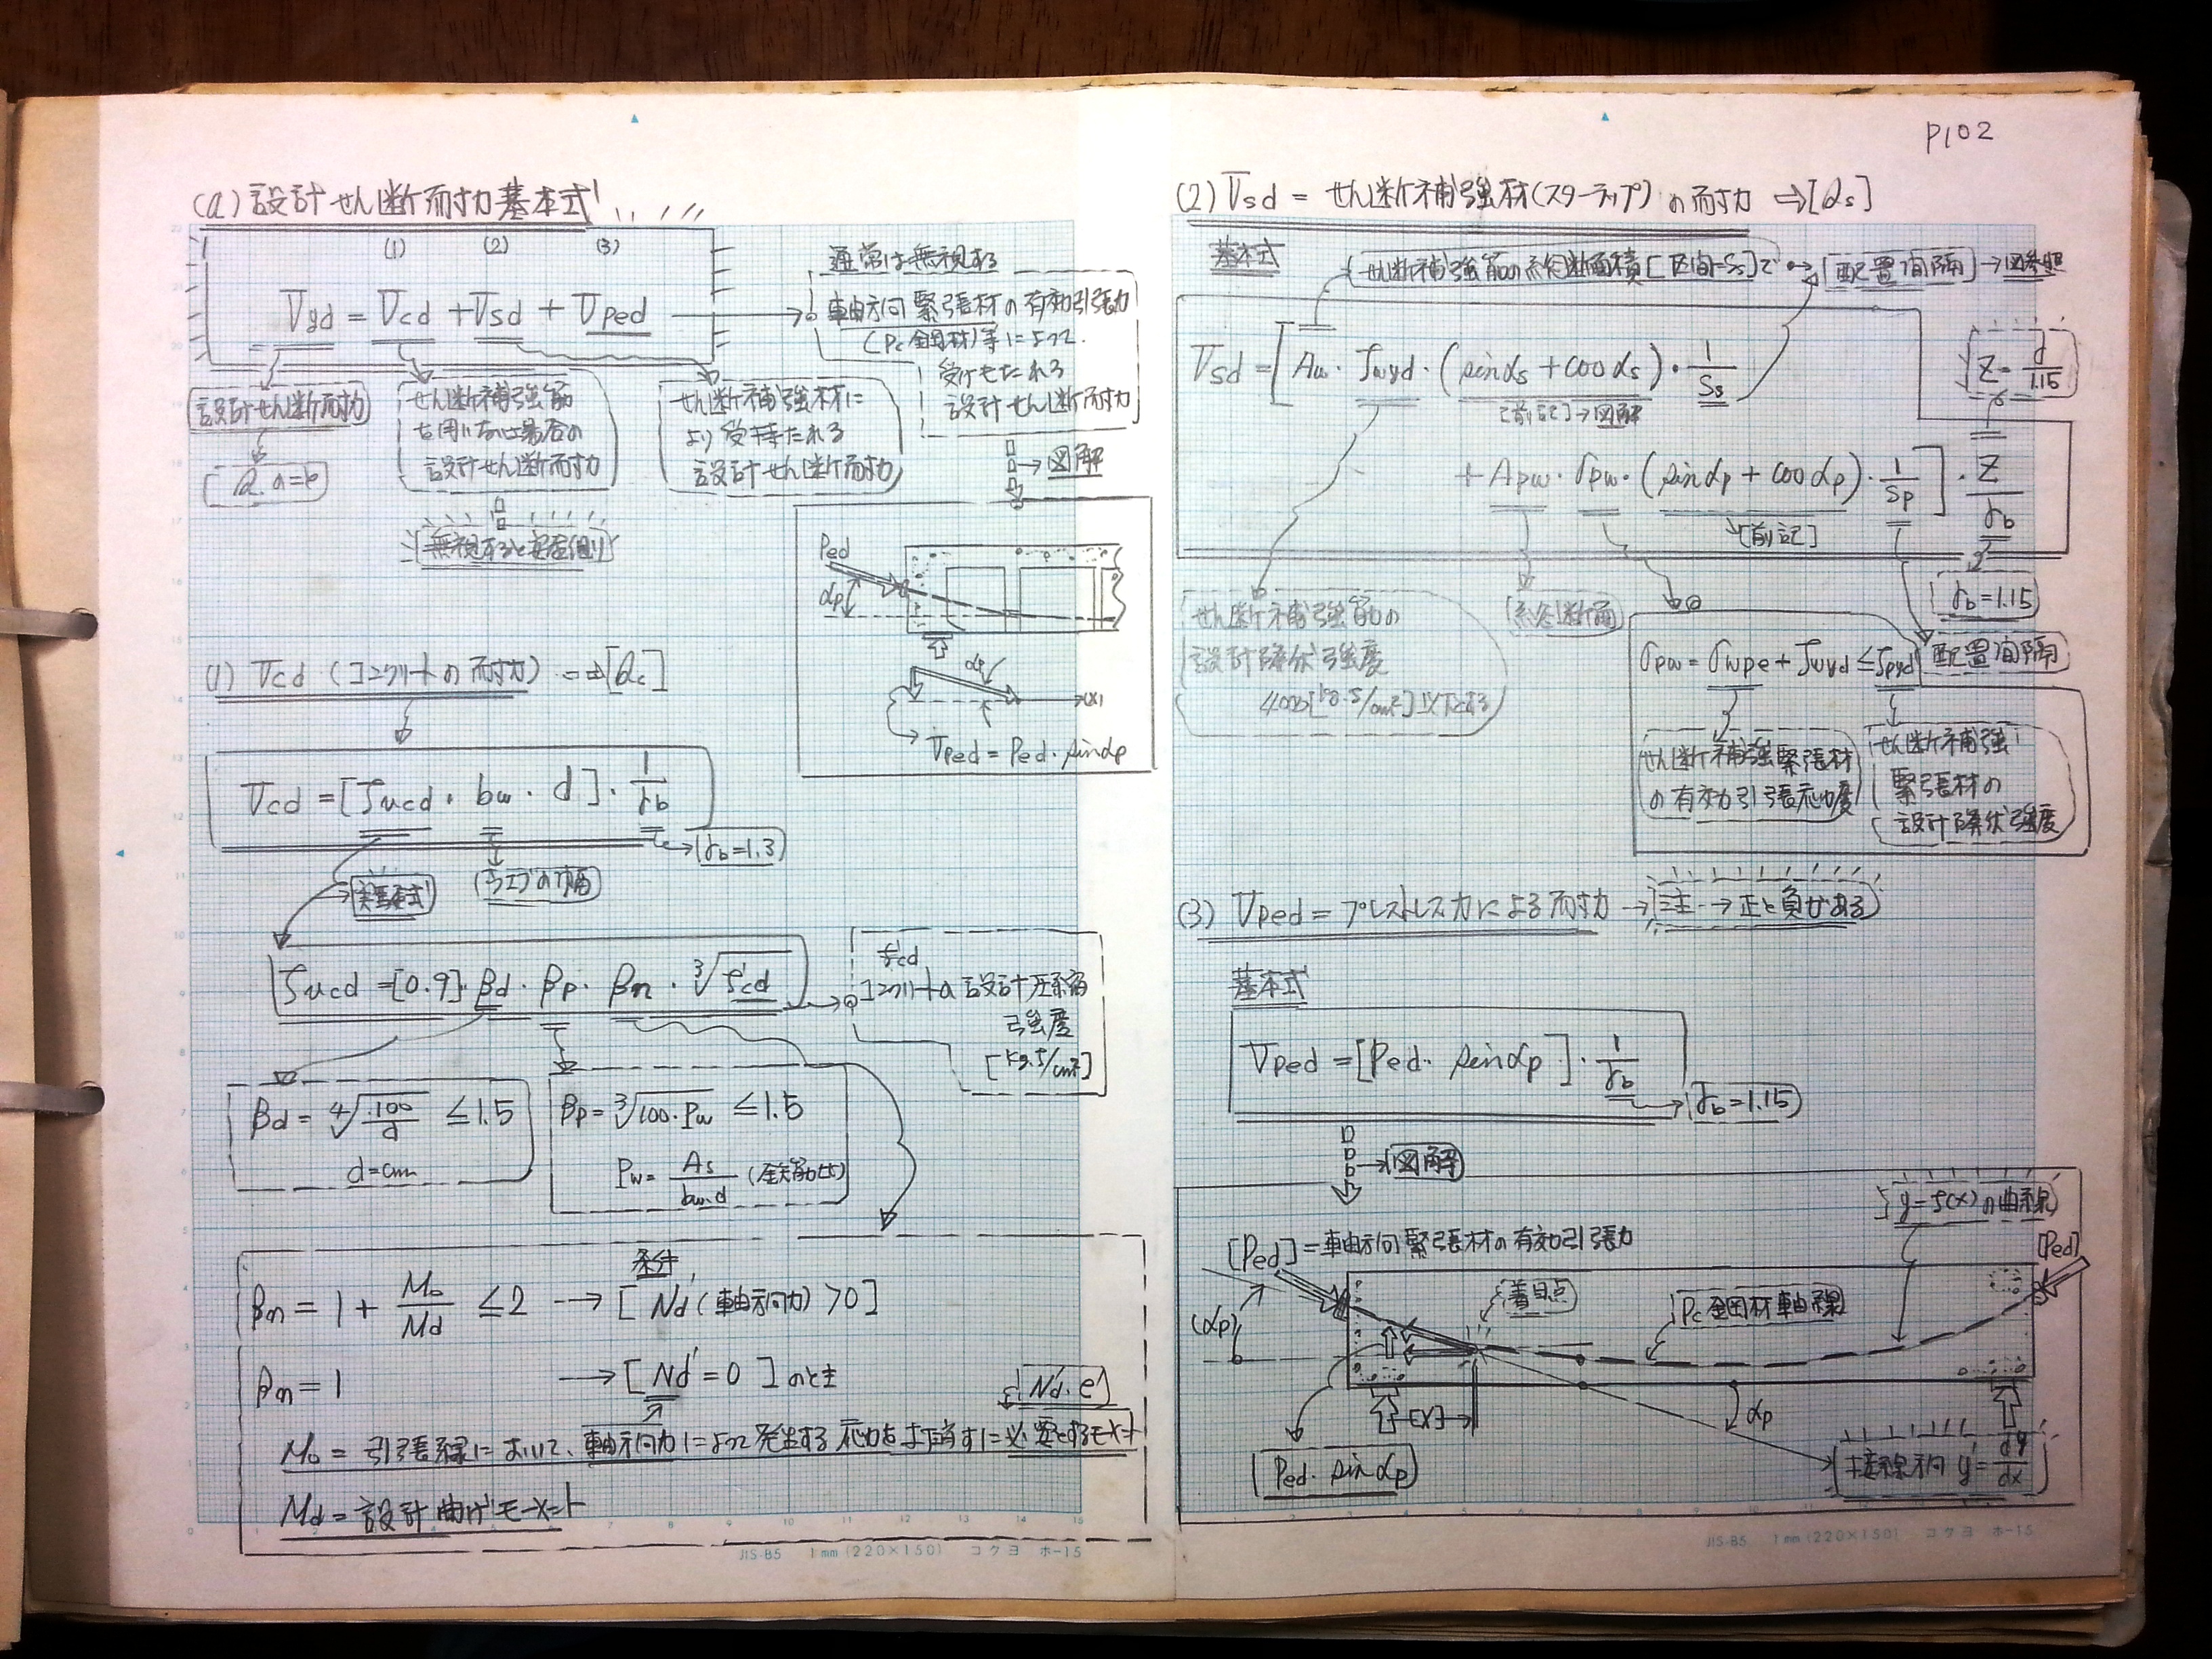 P102
(a) 設計せん断耐力基本式
(1) (2) (3)
Vyd = Vcd + Vsd + Vped
設計せん断耐力
せん断補強筋
を用いない場合の
設計せん断耐力
無視すると安全側
せん断補強材に
より受持たれる
設計せん断耐力
通常は無視する
軸方向緊張材の有効引張力
(PC鋼材)等によって
受持たれる
設計せん断耐力
図解
Ped
αp
αp
(x)
Vped = Ped・sinαp
(1) Vcd (コンクリートの耐力) ⇒ [Qc]
Vcd = [fvcd・bw・d]・1/γb
(γb=1.3)
実験式
(ウエブの幅)
fvcd = [0.9]・βd・βp・βn・∛f'cd
f'cd
コンクリートの設計圧縮
強度
[kg.f/cm²]
βd = ∜100/d ≦ 1.5
d=cm
βp = ∛100・Pw ≦ 1.5
Pw = As/bw・d (鉄筋比)
条件
βn = 1 + Mo/Md ≦ 2 → [N'd (軸方向力) > 0]
βn = 1 → [N'd = 0] のとき
(N'd・e)
Mo = 引張縁において、軸方向力によって発生する応力を打消すに必要とするモーメント
Md = 設計曲げモーメント
JIS-B5 1mm (220×150) コクヨ ホ-15
(2) Vsd = せん断補強材(スターラップ)の耐力 ⇒ [Qs]
基本式
せん断補強筋の総断面積[区間-Ss]で
[配置間隔] → 図参照
Vsd = [Aw・fwyd・(sinαs + cosαs)・1/Ss
[前記]→図解
Z = d/1.15
+ Apw・σpw・(sinαp + cosαp)・1/Sp]・Z/γb
[前記]
γb=1.15
せん断補強筋の
設計降伏強度
4000[kg.f/cm²]以下とする
(総断面)
配置間隔
σpw = σwpe + fwyd ≦ fpyd
せん断補強緊張材
の有効引張応力度
せん断補強
緊張材の
設計降伏強度
(3) Vped = プレストレス力による耐力 → 注 → 正と負がある
基本式
Vped = [Ped・sinαp]・1/γb
(γb=1.15)
図解
y=f(x)の曲線
[Ped] = 軸方向緊張材の有効引張力
[Ped]
着目点
PC鋼材軸線
(αp)
[X]
αp
Ped・sinαp
接線方向 y' = dy/dx
JIS-B5 1mm (220×150) コクヨ ホ-15